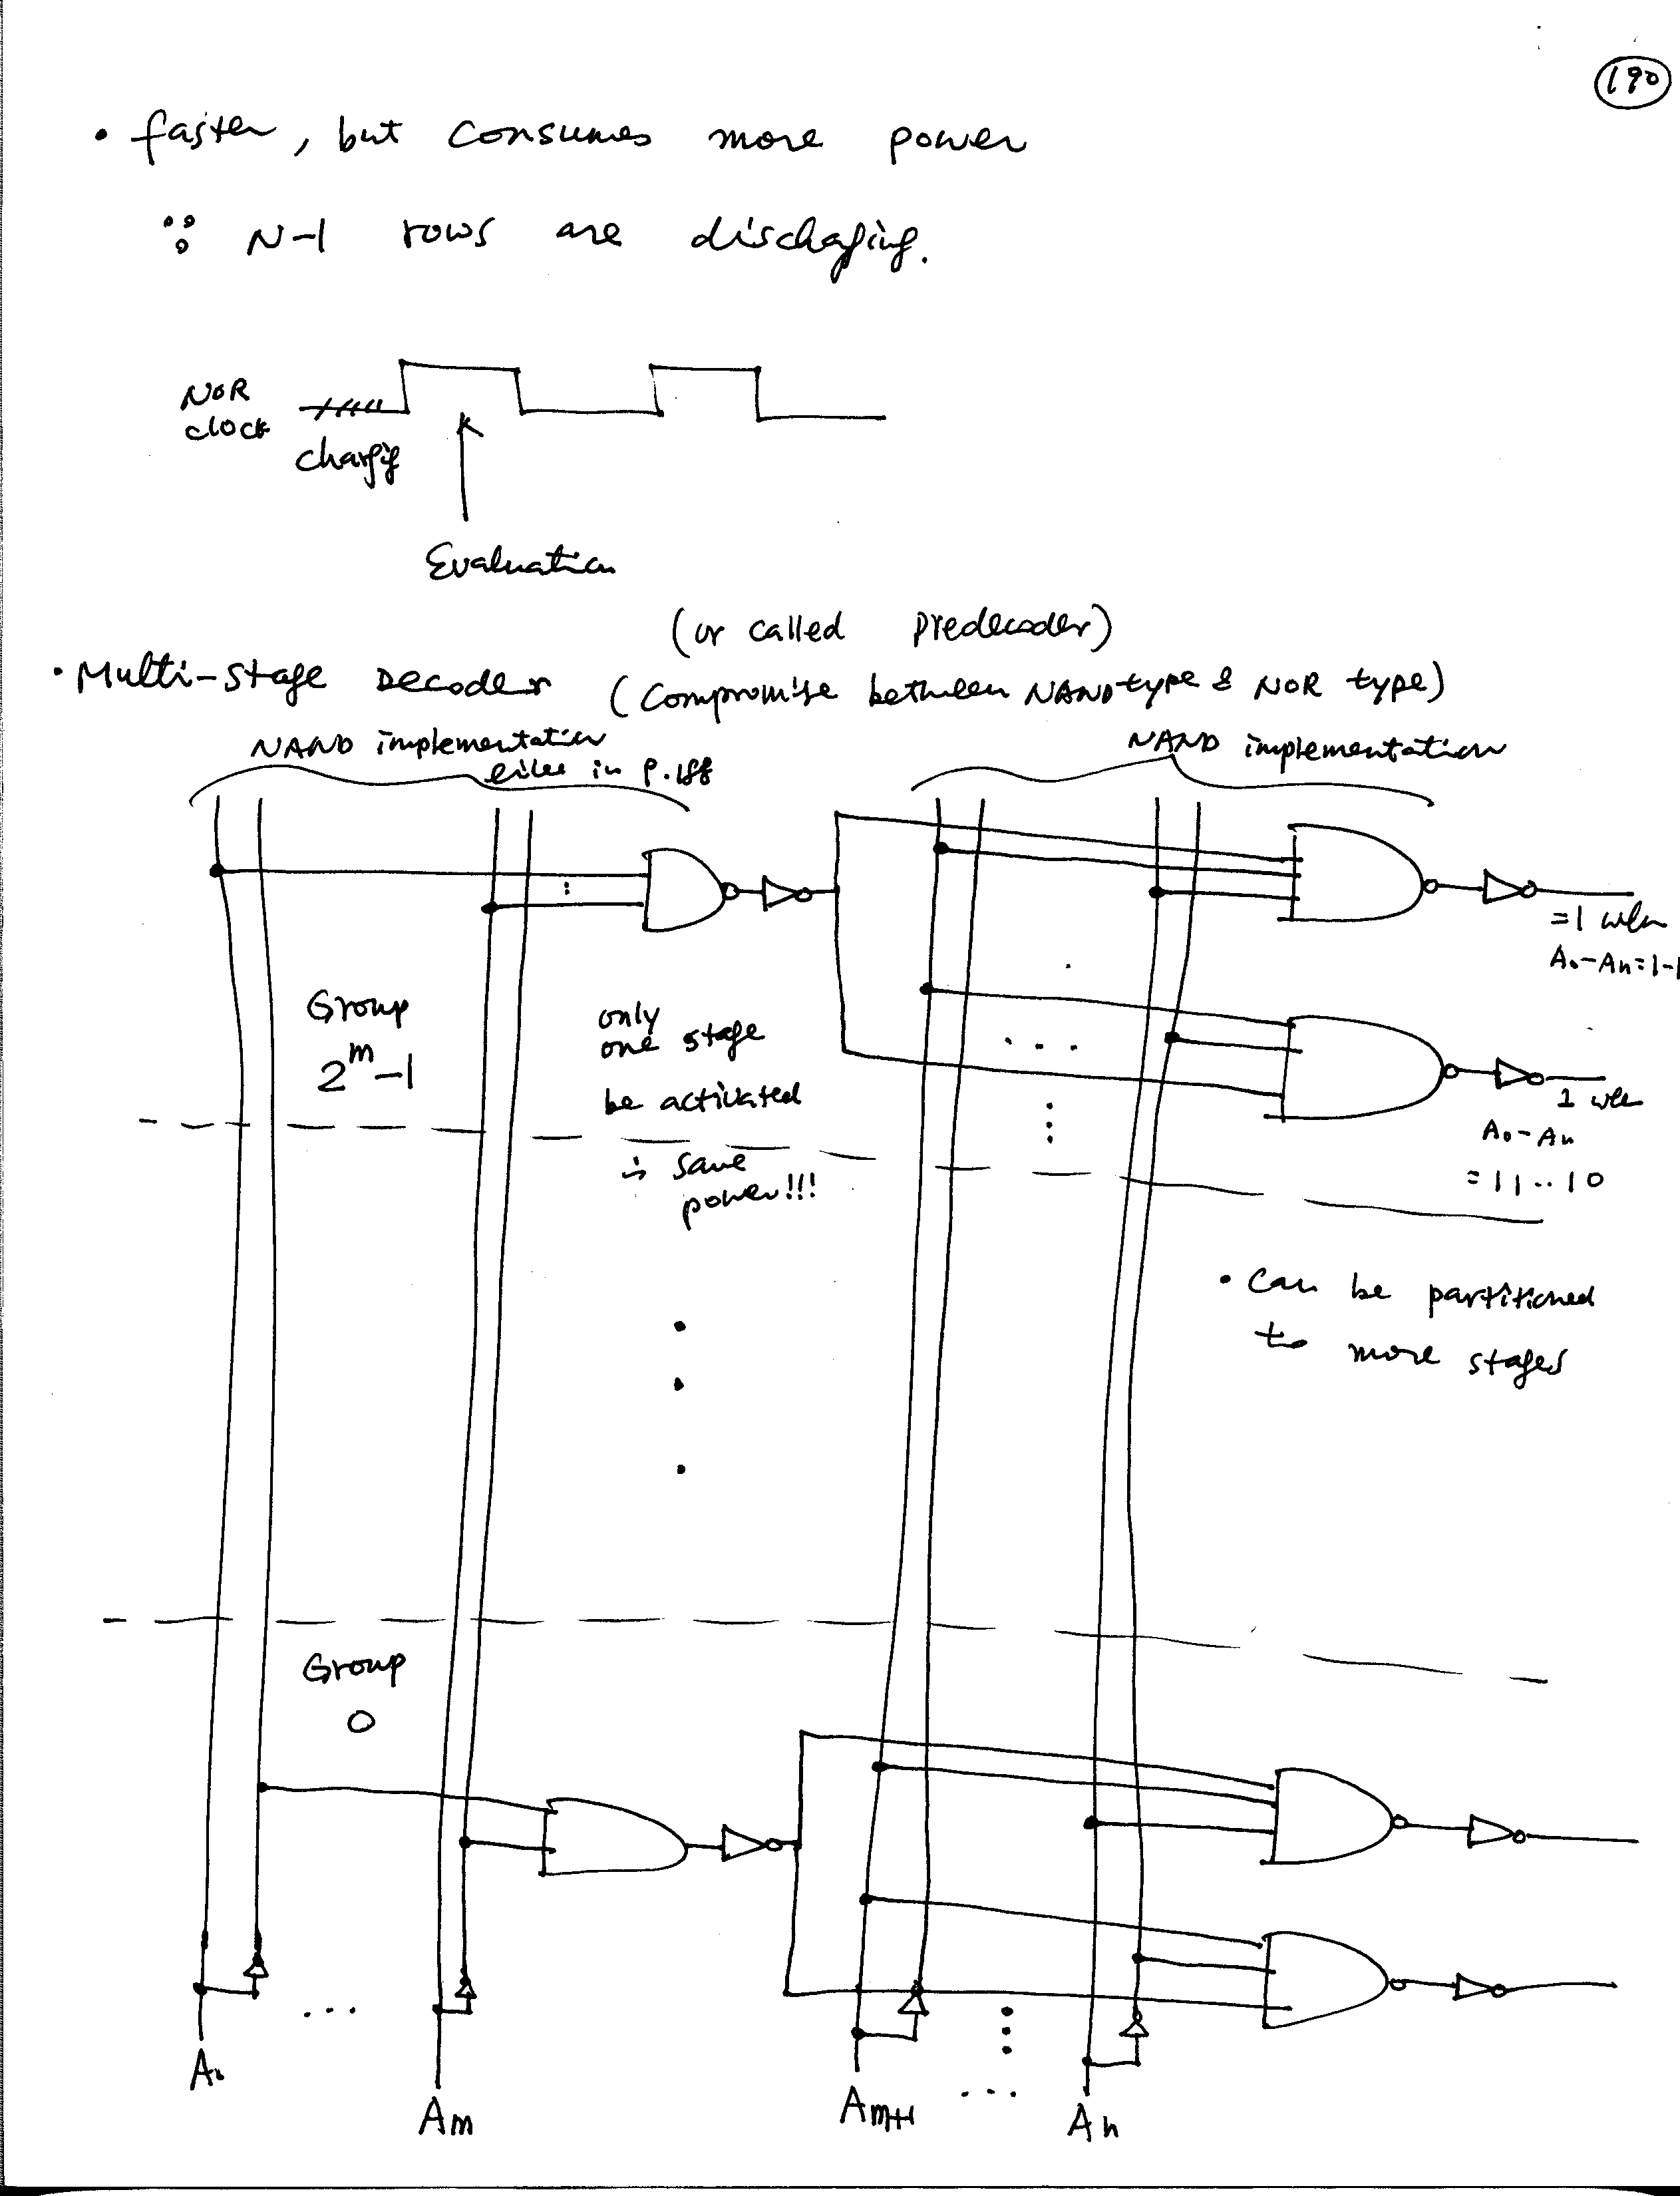 190
• faster, but consumes more power
∵ N-1 rows are dischaging.
NOR
clock
Evaluation
(or called Predecoder)
• Multi-stage Decoder (Compromise between NAND type & NOR type)
NAND implementation
in P.188
NAND implementation
=1 when
A0-An=1-1
Group
2^m-1
only
one stage
be activated
∴ save
power!!!
1 when
A0-An
=11..10
• Can be partitioned
to more stages
Group
0
A0
...
Am
Am+1
...
An